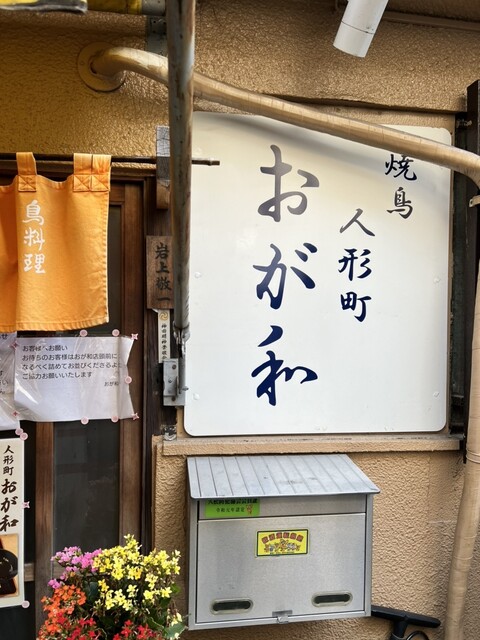 焼鳥
人形町
おが和
鳥料理
岩上敬一
お客様へお願い
お待ちのお客様はおが和店頭前に
なるべく詰めてお並びくださるよう
ご協力お願いいたします
おが和
人形町
おが和